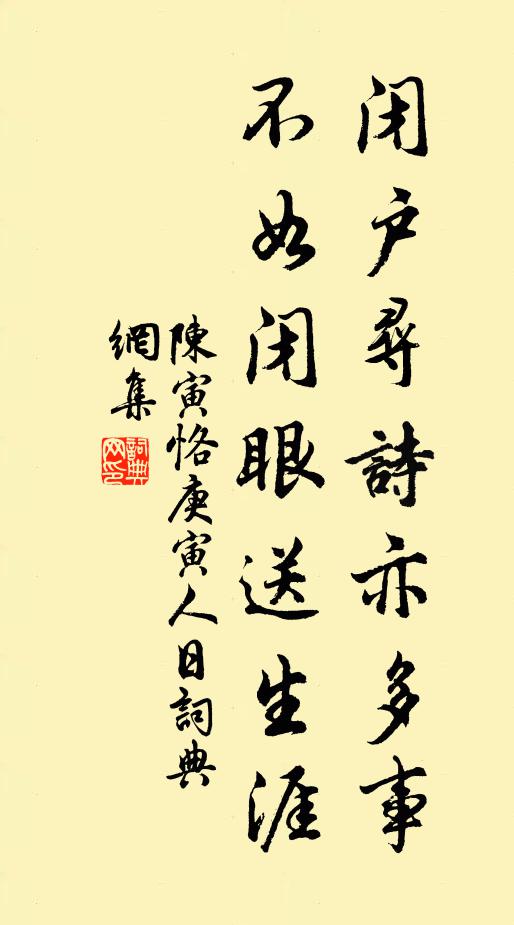 闭户尋詩亦多事
不如闭眼送生涯
陳寅恪庚寅人日詞典
網集
詞典
网印